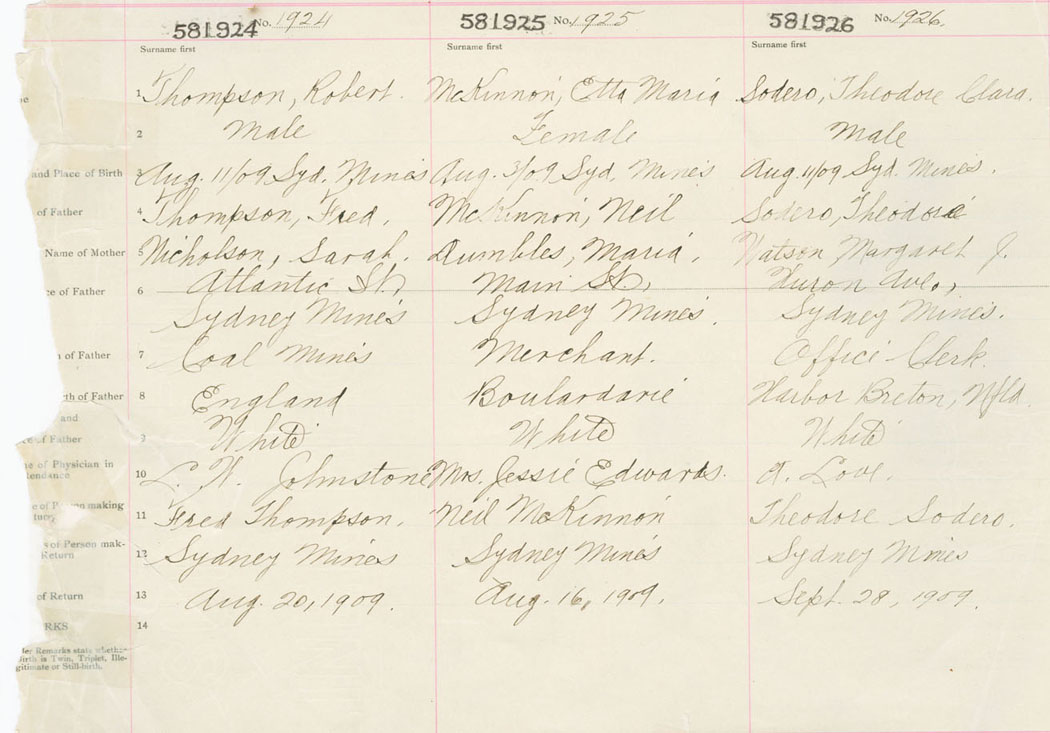 581924 No. 1924
Surname first
1 Thompson, Robert.
2 Male
3 Aug. 11/09 Syd. Mines
4 Thompson, Fred.
5 Nicholson, Sarah.
6 Atlantic St,
Sydney Mines
7 Coal Mines
8 England
9 White
10 L. W. Johnstone
11 Fred Thompson.
12 Sydney Mines
13 Aug. 20, 1909.
14
581925 No. 1925
Surname first
McKinnon, Etta Maria
Female
Aug. 3/09 Syd. Mines
McKinnon, Neil
Rumbles, Maria.
Main St,
Sydney Mines.
Merchant.
Boulardarie
White
Mrs. Jessie Edwards.
Neil McKinnon
Sydney Mines
Aug. 16, 1909.
581926 No. 1926.
Surname first
Sodero, Theodore Clara.
Male
Aug. 11/09 Syd. Mines.
Sodero, Theodore
Watson Margaret J.
Huron Ave.,
Sydney Mines.
Office Clerk.
Harbor Breton, Nfld.
White
A. Love.
Theodore Sodero.
Sydney Mines
Sept. 28, 1909.
and Place of Birth
of Father
Name of Mother
of Father
of Father
of Father
and
of Father
of Physician in
of Person making
of Person mak-
Return
of Return
RKS
Remarks state
Birth is Twin, Triplet, Ille-
gitimate or Still-birth.